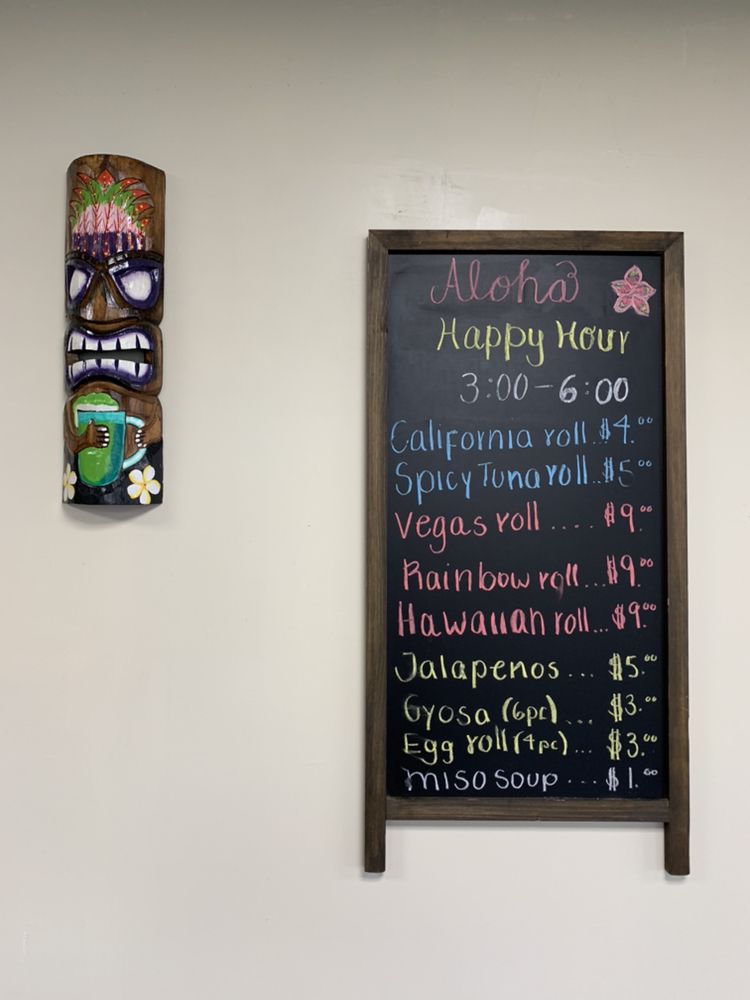 Aloha
Happy Hour
3:00-6:00
California roll..$4.00
Spicy Tuna roll..$5.00
Vegas roll .... $9.00
Rainbow roll...$9.00
Hawaiian roll...$9.00
Jalapenos... $5.00
Gyosa (6pc)... $3.00
Egg roll (4pc)... $3.00
miso soup ... $1.00